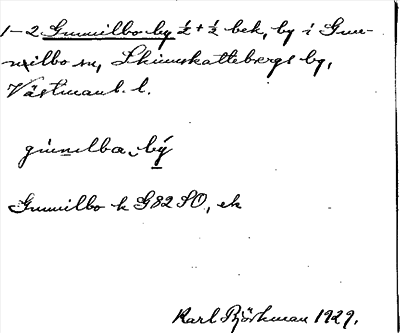 1-2 Gunnilbo by ½ + ½ bek, by i Gun-
nilbo sn, Skinnskattebergs bg,
Västmanl. l.
gunnılba, by̅
Gunnilbo k G82 SO, ek
Karl Björkman 1929.